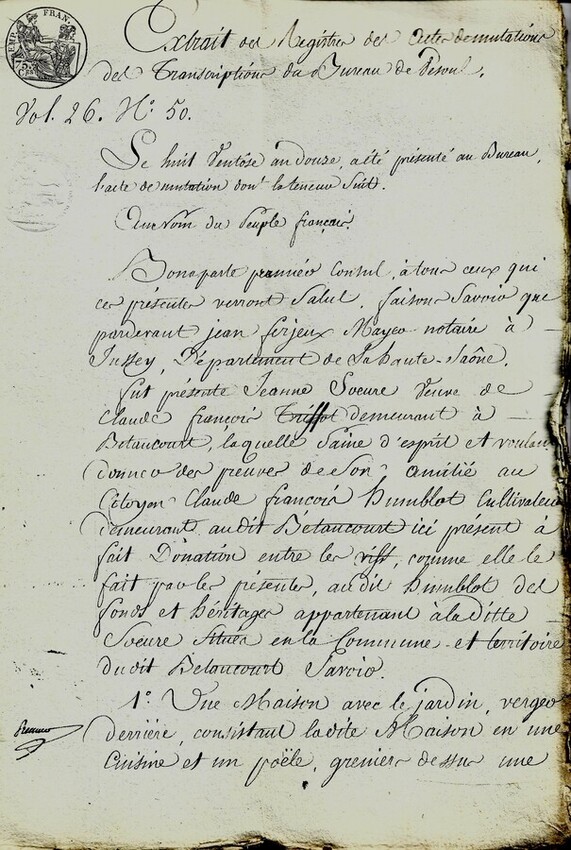 EMP. FRAN.
75 Ces
Extrait des Registres des actes de mutations
des Transcriptions du Bureau de Vesoul.
Vol. 26. N.º 50.
Le huit Ventôse an douze, a été présenté au Bureau,
l'acte de mutation dont la teneur suit.
Au Nom du Peuple français.
Bonaparte premier Consul, à tous ceux qui
ces présentes verront Salut, faisons Savoir que
pardevant jean ferjeux Mayer notaire à
Jussey, Département de La haute-Saône.
fut présente Jeanne Soeure Veuve de
Claude françois demeurant à
Betaucourt, laquelle Saine d'esprit et voulant
donner des preuves de Son amitié au
Citoyen Claude françois Humblot Cultivateur
demeurant audit Bétaucourt ici présent à
fait Donation entre les vifs, comme elle le
fait par les présentes, audit Humblot des
fonds et héritages appartenant à la ditte
Soeure Situés en la Commune et territoire
dudit Betaucourt Savoir.
1º. Une Maison avec le jardin, verger
derrière, consistant ladite Maison en une
Cuisine et un poële, greniers dessus une